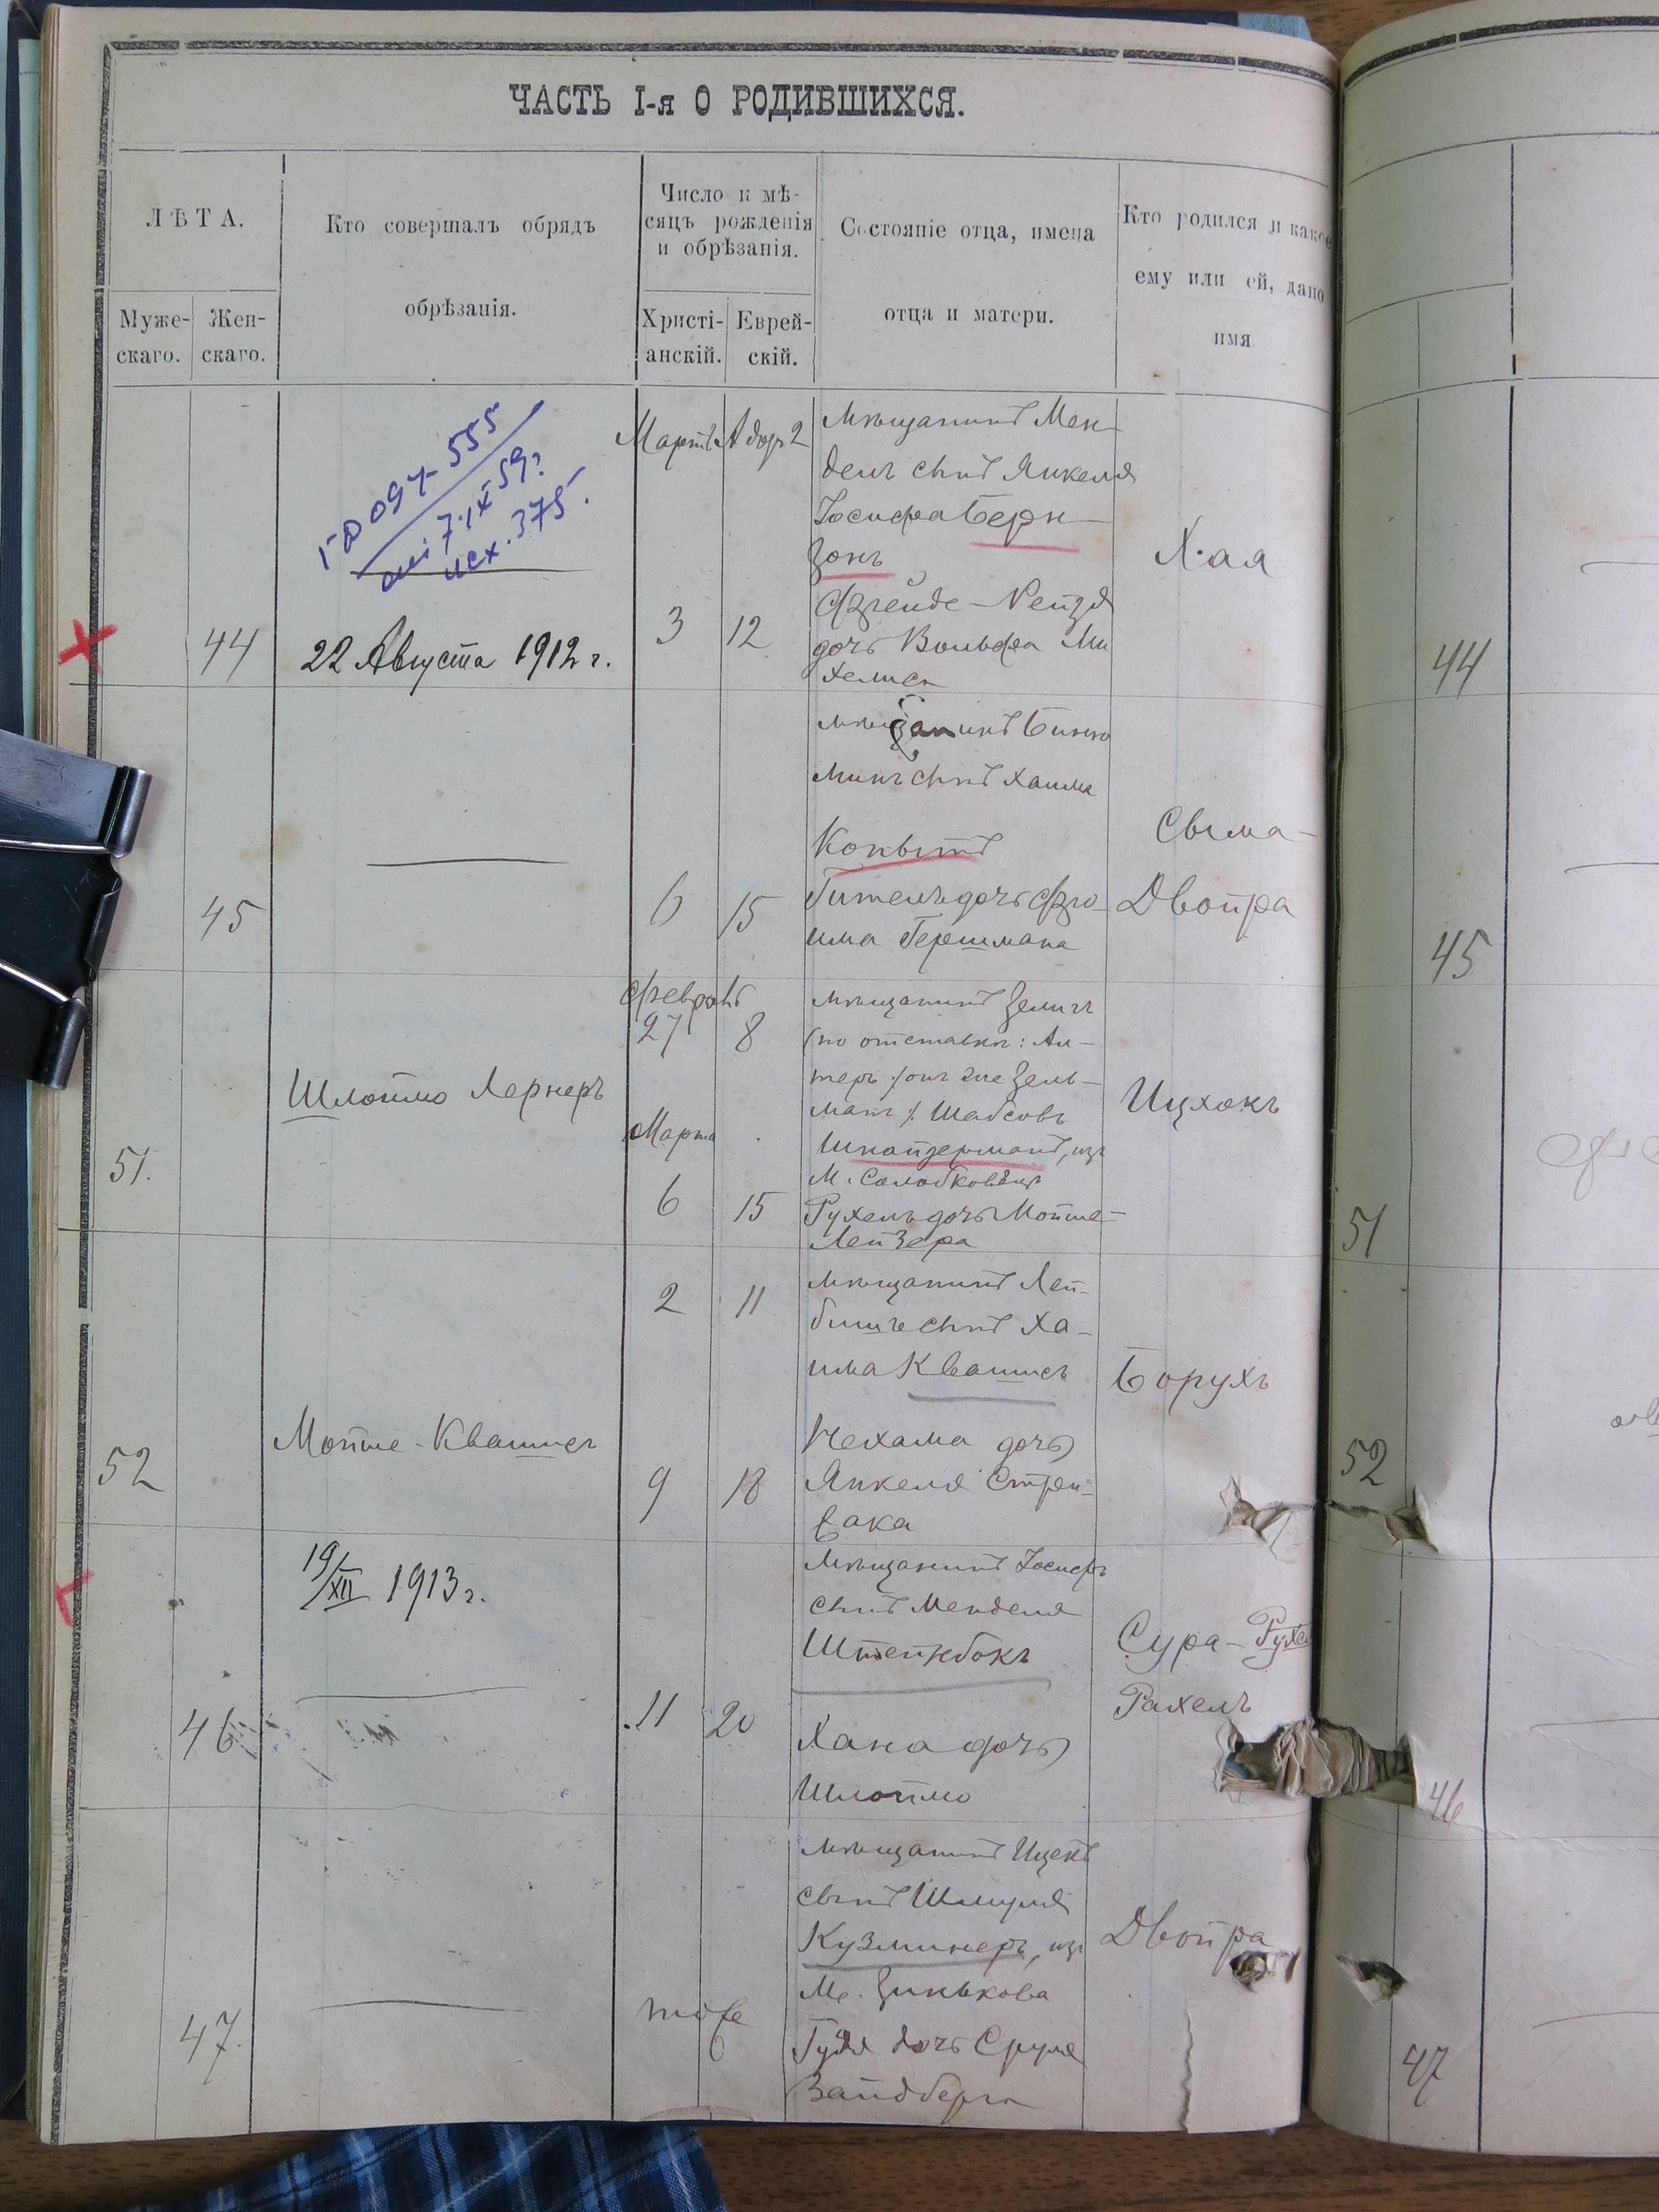 ЧАСТЬ I-я О РОДИВШИХСЯ.
ЛѢТА.
Муже-
скаго.
Жен-
скаго.
Кто совершалъ обрядъ
обрѣзанія.
Число и мѣ-
сяцъ рожденія
и обрѣзанія.
Христі-
анскій.
Еврей-
скій.
Состояніе отца, имена
отца и матери.
Кто родился и какое
ему или ей, дано
имя
555
7.IX 59г
исх. 375.
44
22 Августа 1912 г.
Мартъ Адоръ 2
3 12
мѣщанинъ Мен-
дель сынъ Янкеля
Іосифа Берн-
зонъ
Фрейде-Рейзя
дочь Вольфа Ми
хелиса
Хая
44
45
6 15
мѣщанинъ Биню
минъ сынъ Хаима
Копытъ
Гитель дочь Фро-
има Гершмана
Сыма-
Двойра
45
51.
Шлоймо Лернеръ
Февраль
27 8
Марта
6 15
мѣщанинъ Зелигъ
(по отставкѣ: Ал-
теръ онъ же Зель-
манъ) Шабсовъ
Шнайдерманъ, изъ
М. Солобковецъ
Рухель дочь Мойше-
Лейзера
Ицхокъ
51
52
Мойше-Квашисъ
2 11
9 18
мѣщанинъ Лей-
бишъ сынъ Ха-
има Квашисъ
Нехама дочь
Янкеля
Борухъ
52
19/XII 1913 г.
46
11 20
Мѣщанинъ Іосифъ
сынъ Менделя
Штейнбокъ
Хана дочь
Шлоймо
Сура-Рухель
Рахель
46
47.
тоже
мѣщанинъ Ицекъ
сынъ Шмуля
Кузминеръ, изъ
М. Зинькова
Гудя дочь Сруля
Вайдберга
Двойра
47